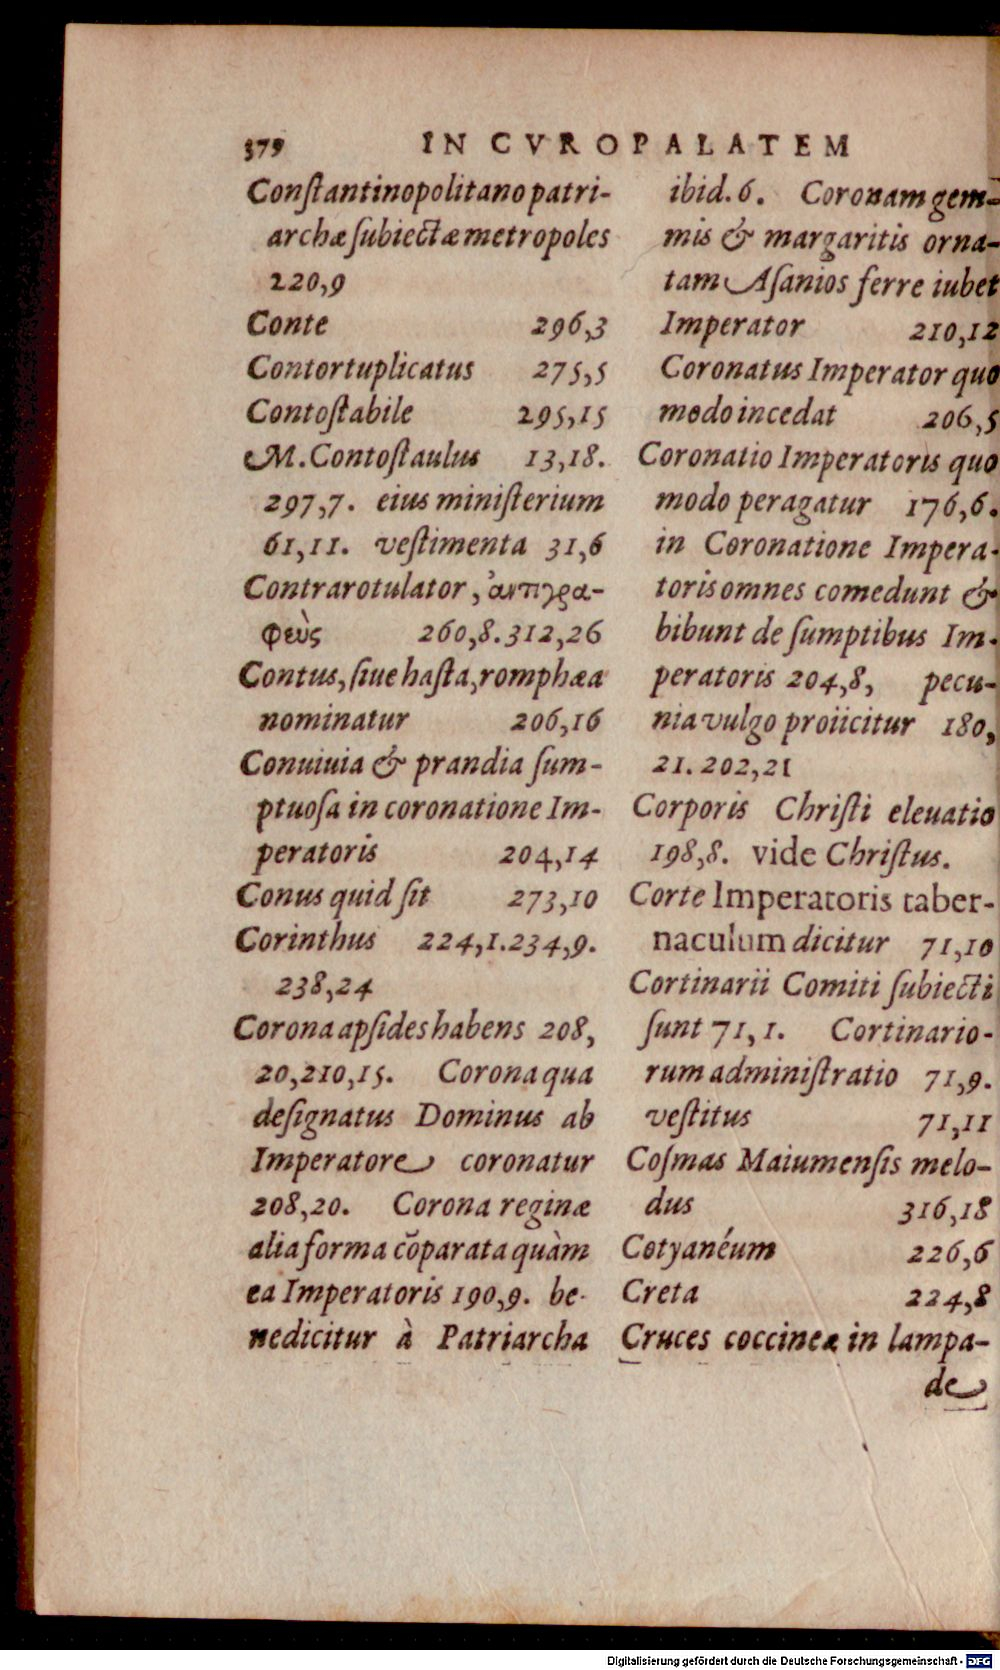 379 IN CVROPALATEM
Conſtantinopolitano patri-
archæ ſubiectæ metropoles
220,9
Conte 296,3
Contortuplicatus 275,5
Contoſtabile 295,15
M. Contoſtaulus 13,18.
297,7. eius miniſterium
61,11. veſtimenta 31,6
Contrarotulator, ἀντιγρα-
φεὺς 260,8.312,26
Contus, ſiue haſta, romphæa
nominatur 206,16
Conuiuia & prandia ſum-
ptuoſa in coronatione Im-
peratoris 204,14
Conus quid ſit 273,10
Corinthus 224,1.234,9.
238,24
Corona apſides habens 208,
20,210,15. Corona qua
deſignatus Dominus ab
Imperatore coronatur
208,20. Corona reginæ
alia forma cõparata quàm
ea Imperatoris 190,9. be-
nedicitur à Patriarcha
ibid. 6. Coronam gem-
mis & margaritis orna-
tam Aſanios ferre iubet
Imperator 210,12
Coronatus Imperator quo
modo incedat 206,5
Coronatio Imperatoris quo
modo peragatur 176,6.
in Coronatione Impera-
toris omnes comedunt &
bibunt de ſumptibus Im-
peratoris 204,8, pecu-
nia vulgo proiicitur 180,
21. 202,21
Corporis Chriſti eleuatio
198,8. vide Chriſtus.
Corte Imperatoris taber-
naculum dicitur 71,10
Cortinarii Comiti ſubiecti
ſunt 71,1. Cortinario-
rum adminiſtratio 71,9.
veſtitus 71,11
Coſmas Maiumenſis melo-
dus 316,18
Cotyanéum 226,6
Creta 224,8
Cruces coccineæ in lampa-
de
Digitalisierung gefördert durch die Deutsche Forschungsgemeinschaft - DFG